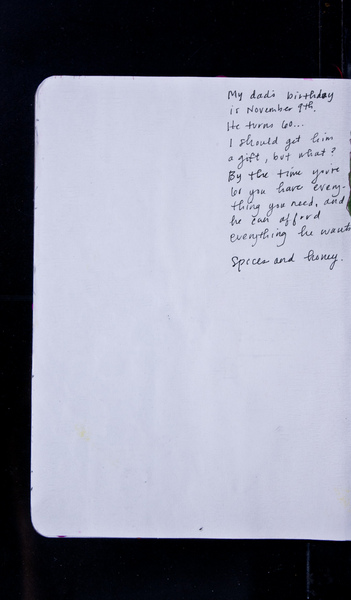 My dad's birthday
is November 9th.
He turns 60...
I should get him
a gift, but what?
By the time you're
60 you have every-
thing you need, and
he can afford
everything he wants
Spices and honey.